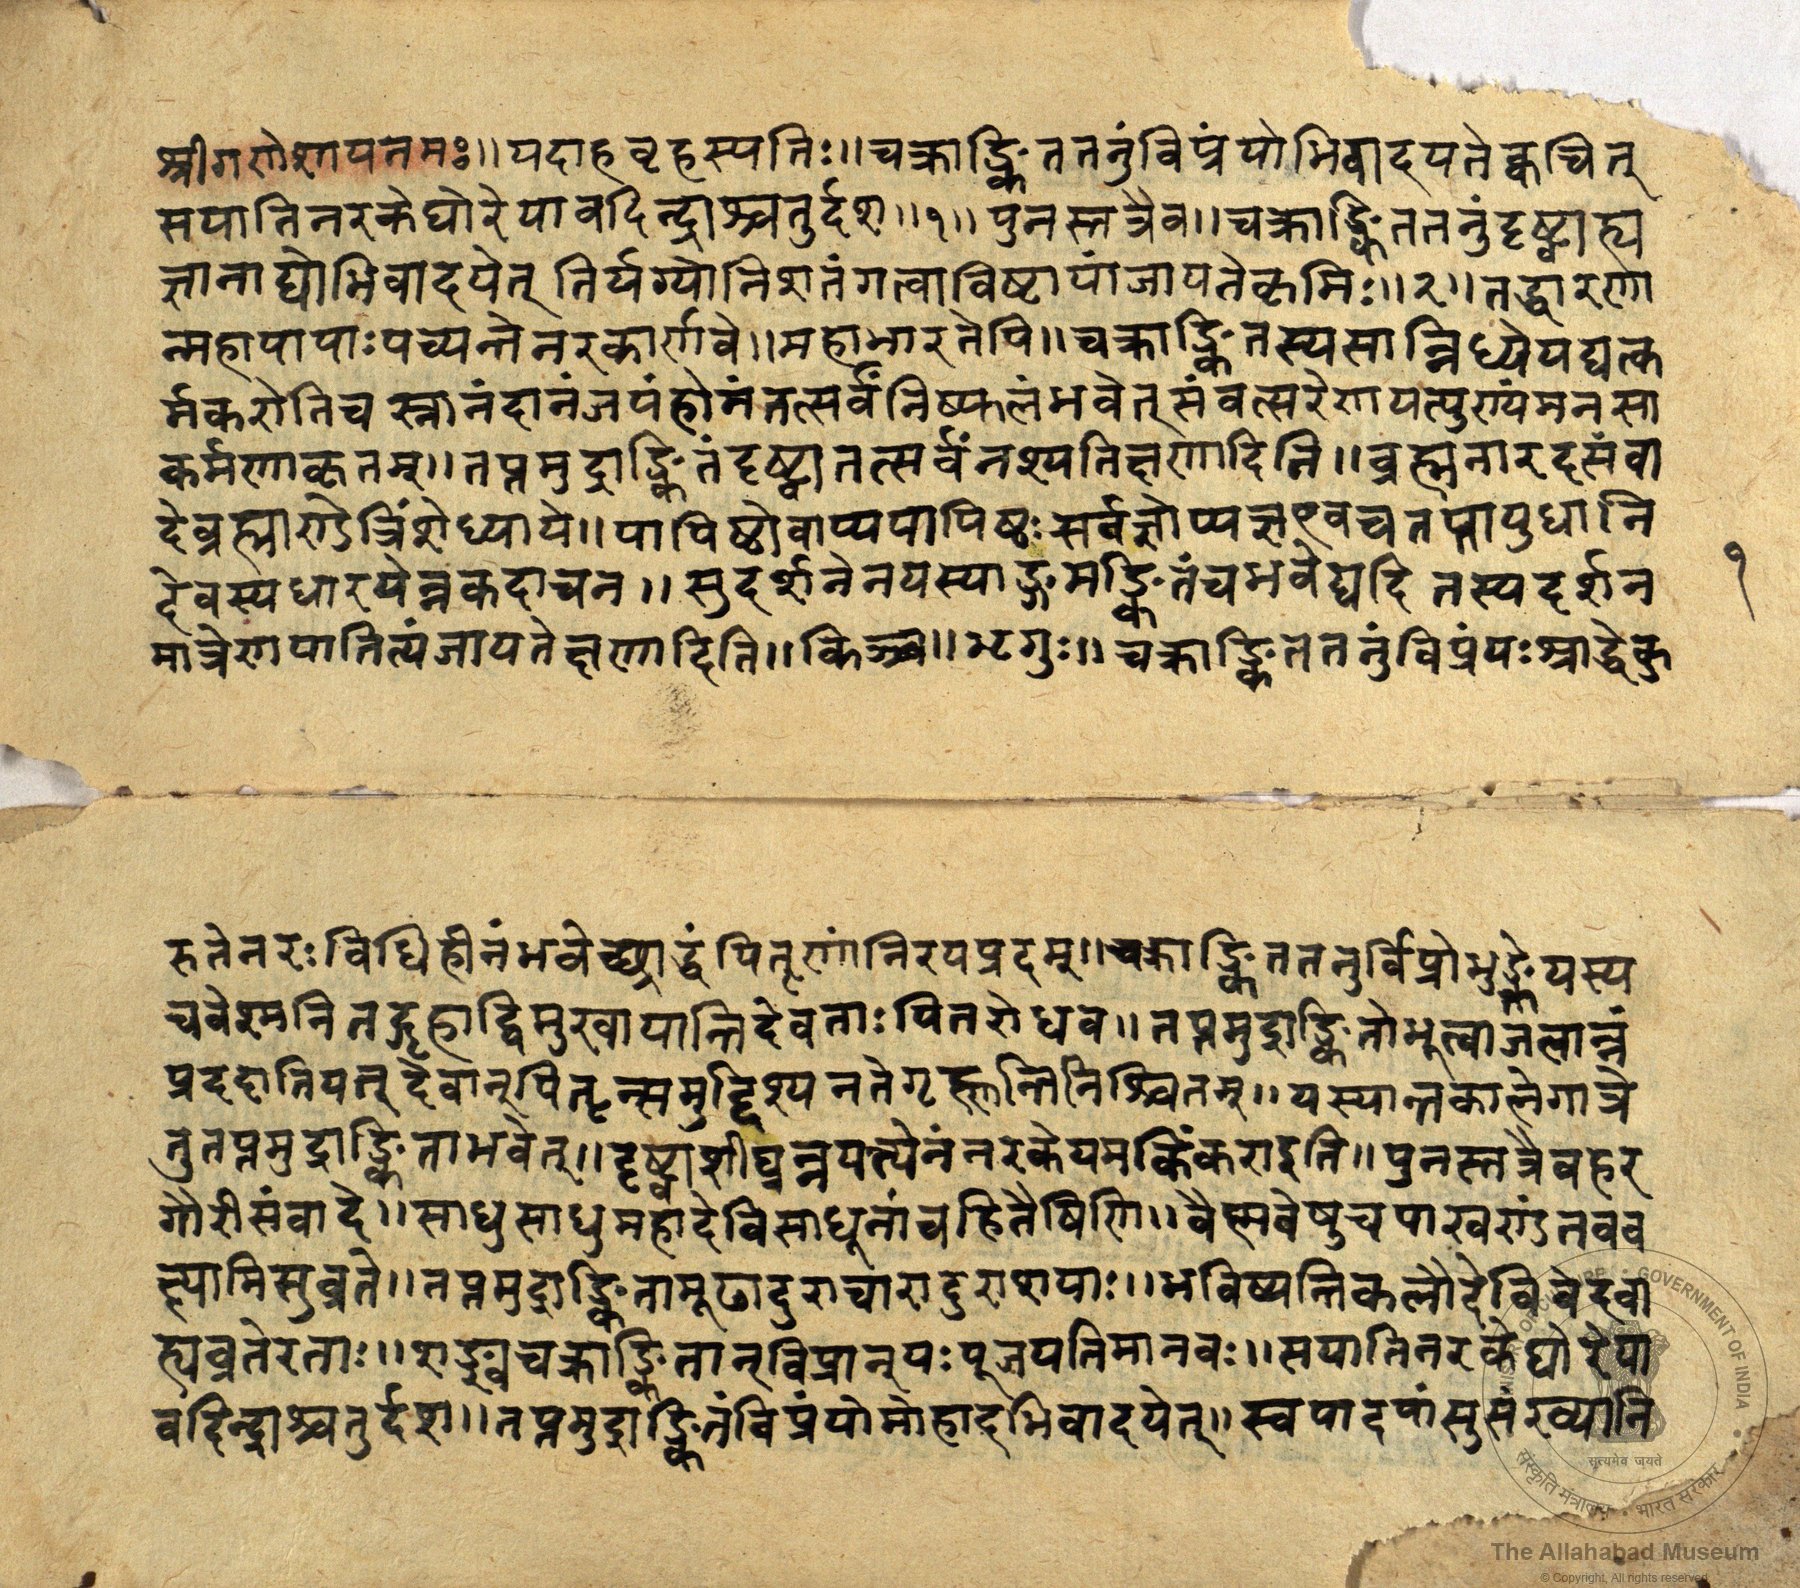 श्रीगणेशायनमः॥यदाहवृहस्पतिः॥चक्राङ्किततनुंविप्रंयोभिवादयतेक्वचित्
सयातिनरकेघोरेयावदिन्द्राश्चतुर्दश॥१॥पुनस्तत्रैव॥चक्राङ्किततनुंदृष्ट्वाह्य
ज्ञानाद्योभिवादयेत् तिर्यग्योनिशतंगत्वाविष्टायांजायतेकृमिः॥२॥तद्धारणा
न्महापापाःपच्यन्तेनरकार्णवे॥महाभारतेपि॥चक्राङ्कितस्यसान्निध्येयद्यत्क
र्मकरोतिच स्नानंदानंजपंहोमंतत्सर्वंनिष्फलंभवेत् संवत्सरेणयत्पुण्यंमनसा
कर्मणाकृतम्॥तप्तमुद्राङ्कितंदृष्ट्वातत्सर्वंनश्यतिक्षणादिति॥व्रह्मनारदसंवा
देव्रह्माण्डेत्रिंशेध्याये॥पापिष्ठोवाप्यपापिष्ठःसर्वज्ञोप्यज्ञएवच तप्तायुधानि
देवस्यधारयेन्नकदाचन॥सुदर्शनेनयस्याङ्गमङ्कितंचभवेद्यदि तस्यदर्शन
मात्रेणपातित्यंजायतेक्षणादिति॥किञ्च॥भृगुः॥चक्राङ्किततनुंविप्रंयःश्राद्धेकु
१
रुतेनरःविधिहीनंभवेच्छ्राद्धंपितॄणांनिरयप्रदम्॥चक्राङ्किततनुर्विप्रोभुङ्क्तेयस्य
चवेश्मनि तद्गृहाद्विमुखायान्तिदेवताःपितरोध्रुव॥तप्तमुद्राङ्कितोभूत्वाजलान्नं
प्रददातियत् देवान्पितॄन्समुद्दिश्यनतेगृह्णन्तिनिश्चितम्॥यस्यान्तकालेगात्रे
तुतप्तमुद्राङ्किताभवेत्॥दृष्ट्वाशीघ्रन्नयत्येनंनरकेयमकिंकराइति॥पुनस्तत्रैवहर
गौरीसंवादे॥साधुसाधुमहादेविसाधूनांचहितैषिणि॥वैष्णवेषुचपाखण्डंतवव
क्ष्यामिसुव्रते॥तप्तमुद्राङ्कितामूढादुराचारादुराशयाः॥भविष्यन्तिकलौदेविवेदवा
ह्यव्रतेरताः॥शङ्खचक्राङ्कितान्विप्रान्यःपूजयतिमानवः॥सयातिनरकेघोरेया
वदिन्द्राश्चतुर्दश॥तप्तमुद्राङ्कितंविप्रंयोमोहादभिवादयेत्॥स्वपादपांसुसंख्यानि
GOVERNMENT OF INDIA
सत्यमेव जयते
संस्कृति मंत्रालय • भारत सरकार
The Allahabad Museum
© Copyright, All rights reserved